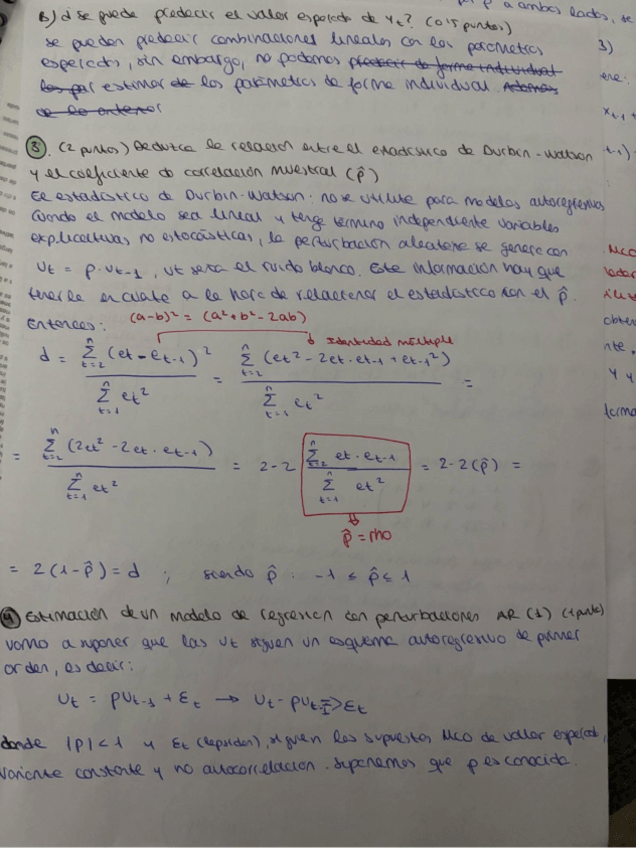 B) ¿Se puede predecir el valor esperado de Yt? (0'5 puntos)
Se pueden predecir combinaciones lineales con los parametros
esperados, sin embargo, no podemos predecir de forma individual
los par estimar de los parámetros de forma individual. Ademas
de lo anterior
3. (2 puntos) Deduzca la relación entre el estadístico de Durbin-Watson
y el coeficiente de correlación muestral (ρ̂)
El estadístico de Durbin-Watson: no se utiliza para modelos autoregresivos
Cuando el modelo sea lineal y tenga termino independiente variables
explicativas no estocásticas, la perturbación aleatoria se genere con
Ut = ρ·Ut-1, Ut sera el ruido blanco. Esta información hay que
tenerla en cuenta a la hora de relacionar el estadístico con el ρ̂.
Entonces: (a-b)² = (a²+b²-2ab)
Identidad múltiple
d = Σ(t=2, n) (et-et-1)² / Σ(t=1, n) et² = Σ(t=2, n) (et² - 2et·et-1 + et-1²) / Σ(t=1, n) et² =
= Σ(t=2, n) (2et² - 2et·et-1) / Σ(t=1, n) et² = 2-2 Σ(t=2, n) et·et-1 / Σ(t=1, n) et² = 2-2(ρ̂) =
ρ̂ = rho
= 2(1-ρ̂) = d ; siendo ρ̂ · -1 ≤ ρ̂ ≤ 1
4 Estimación de un modelo de regresión con perturbaciones AR(1) (1 punto)
vamos a suponer que las Ut siguen un esquema autoregresivo de primer
orden, es decir:
Ut = ρUt-1 + εt → Ut - ρUt-1 => εt
donde |ρ| < 1 y εt (epsilon), siguen los supuestos MCO de valor esperado,
variante constante y no autocorrelación. Suponemos que ρ es conocida.
a ambos lados, se
3)
ere:
xt-1 +
t-1)
MCO
obten
nte,
y y
forma